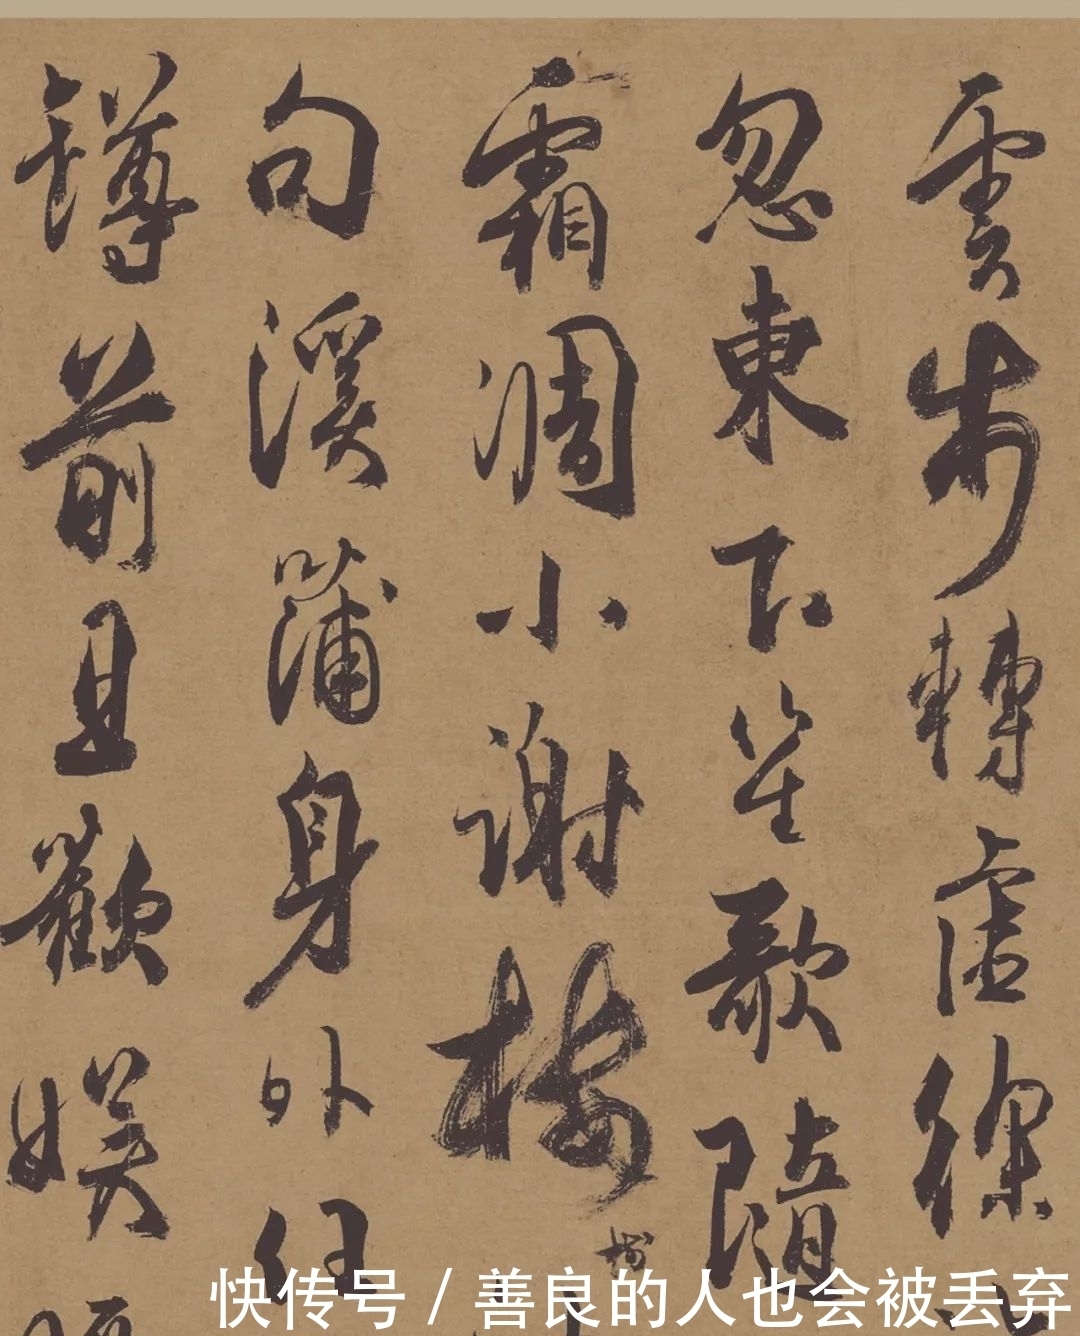 雲步轉虛徐
忽東下笙歌隨
霜凋小謝樓樹
句溪蒲身外任
罇前且歡娛
快传号 / 善良的人也会被丢弃